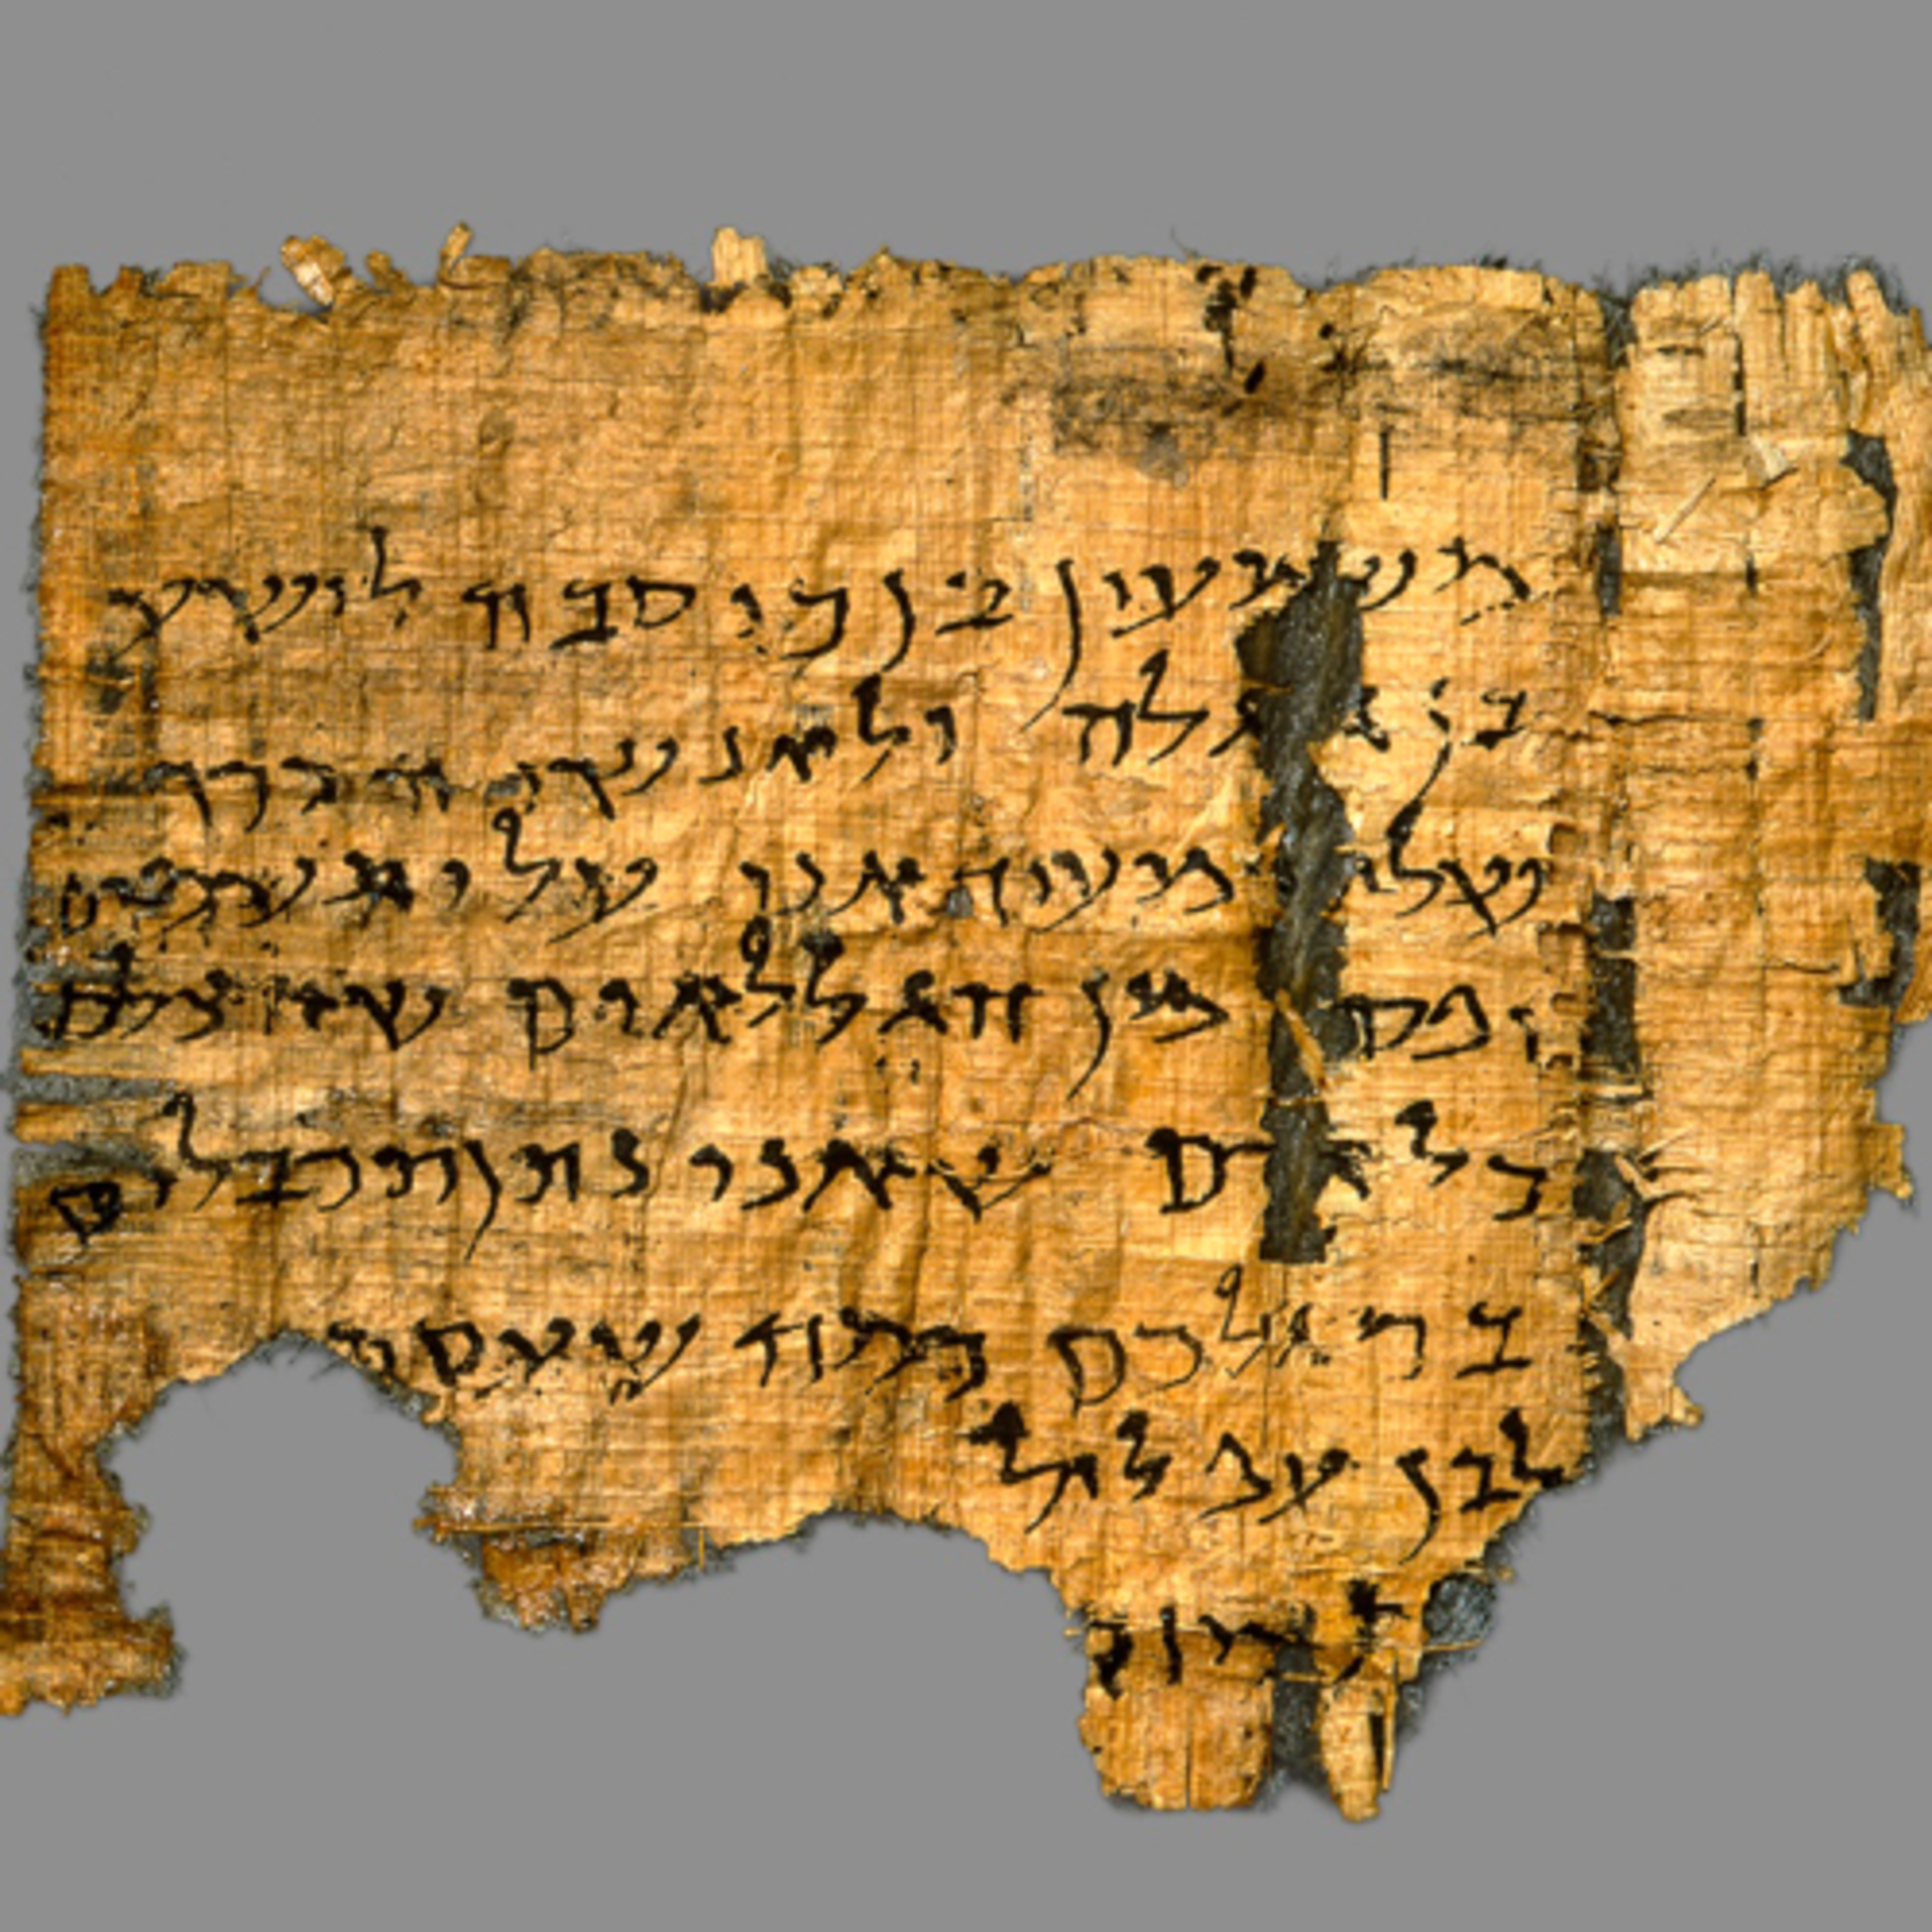 משמעון בן כוסבה לישע
בן גלגלה ולאנשי הכרך
שלום מעיד אני עלי תשמים
יפסד מן הגללאים שהצלכם
כל אדם שאני נתן תכבלים
ברגלכם כמה שעסתי
לבן עפלול